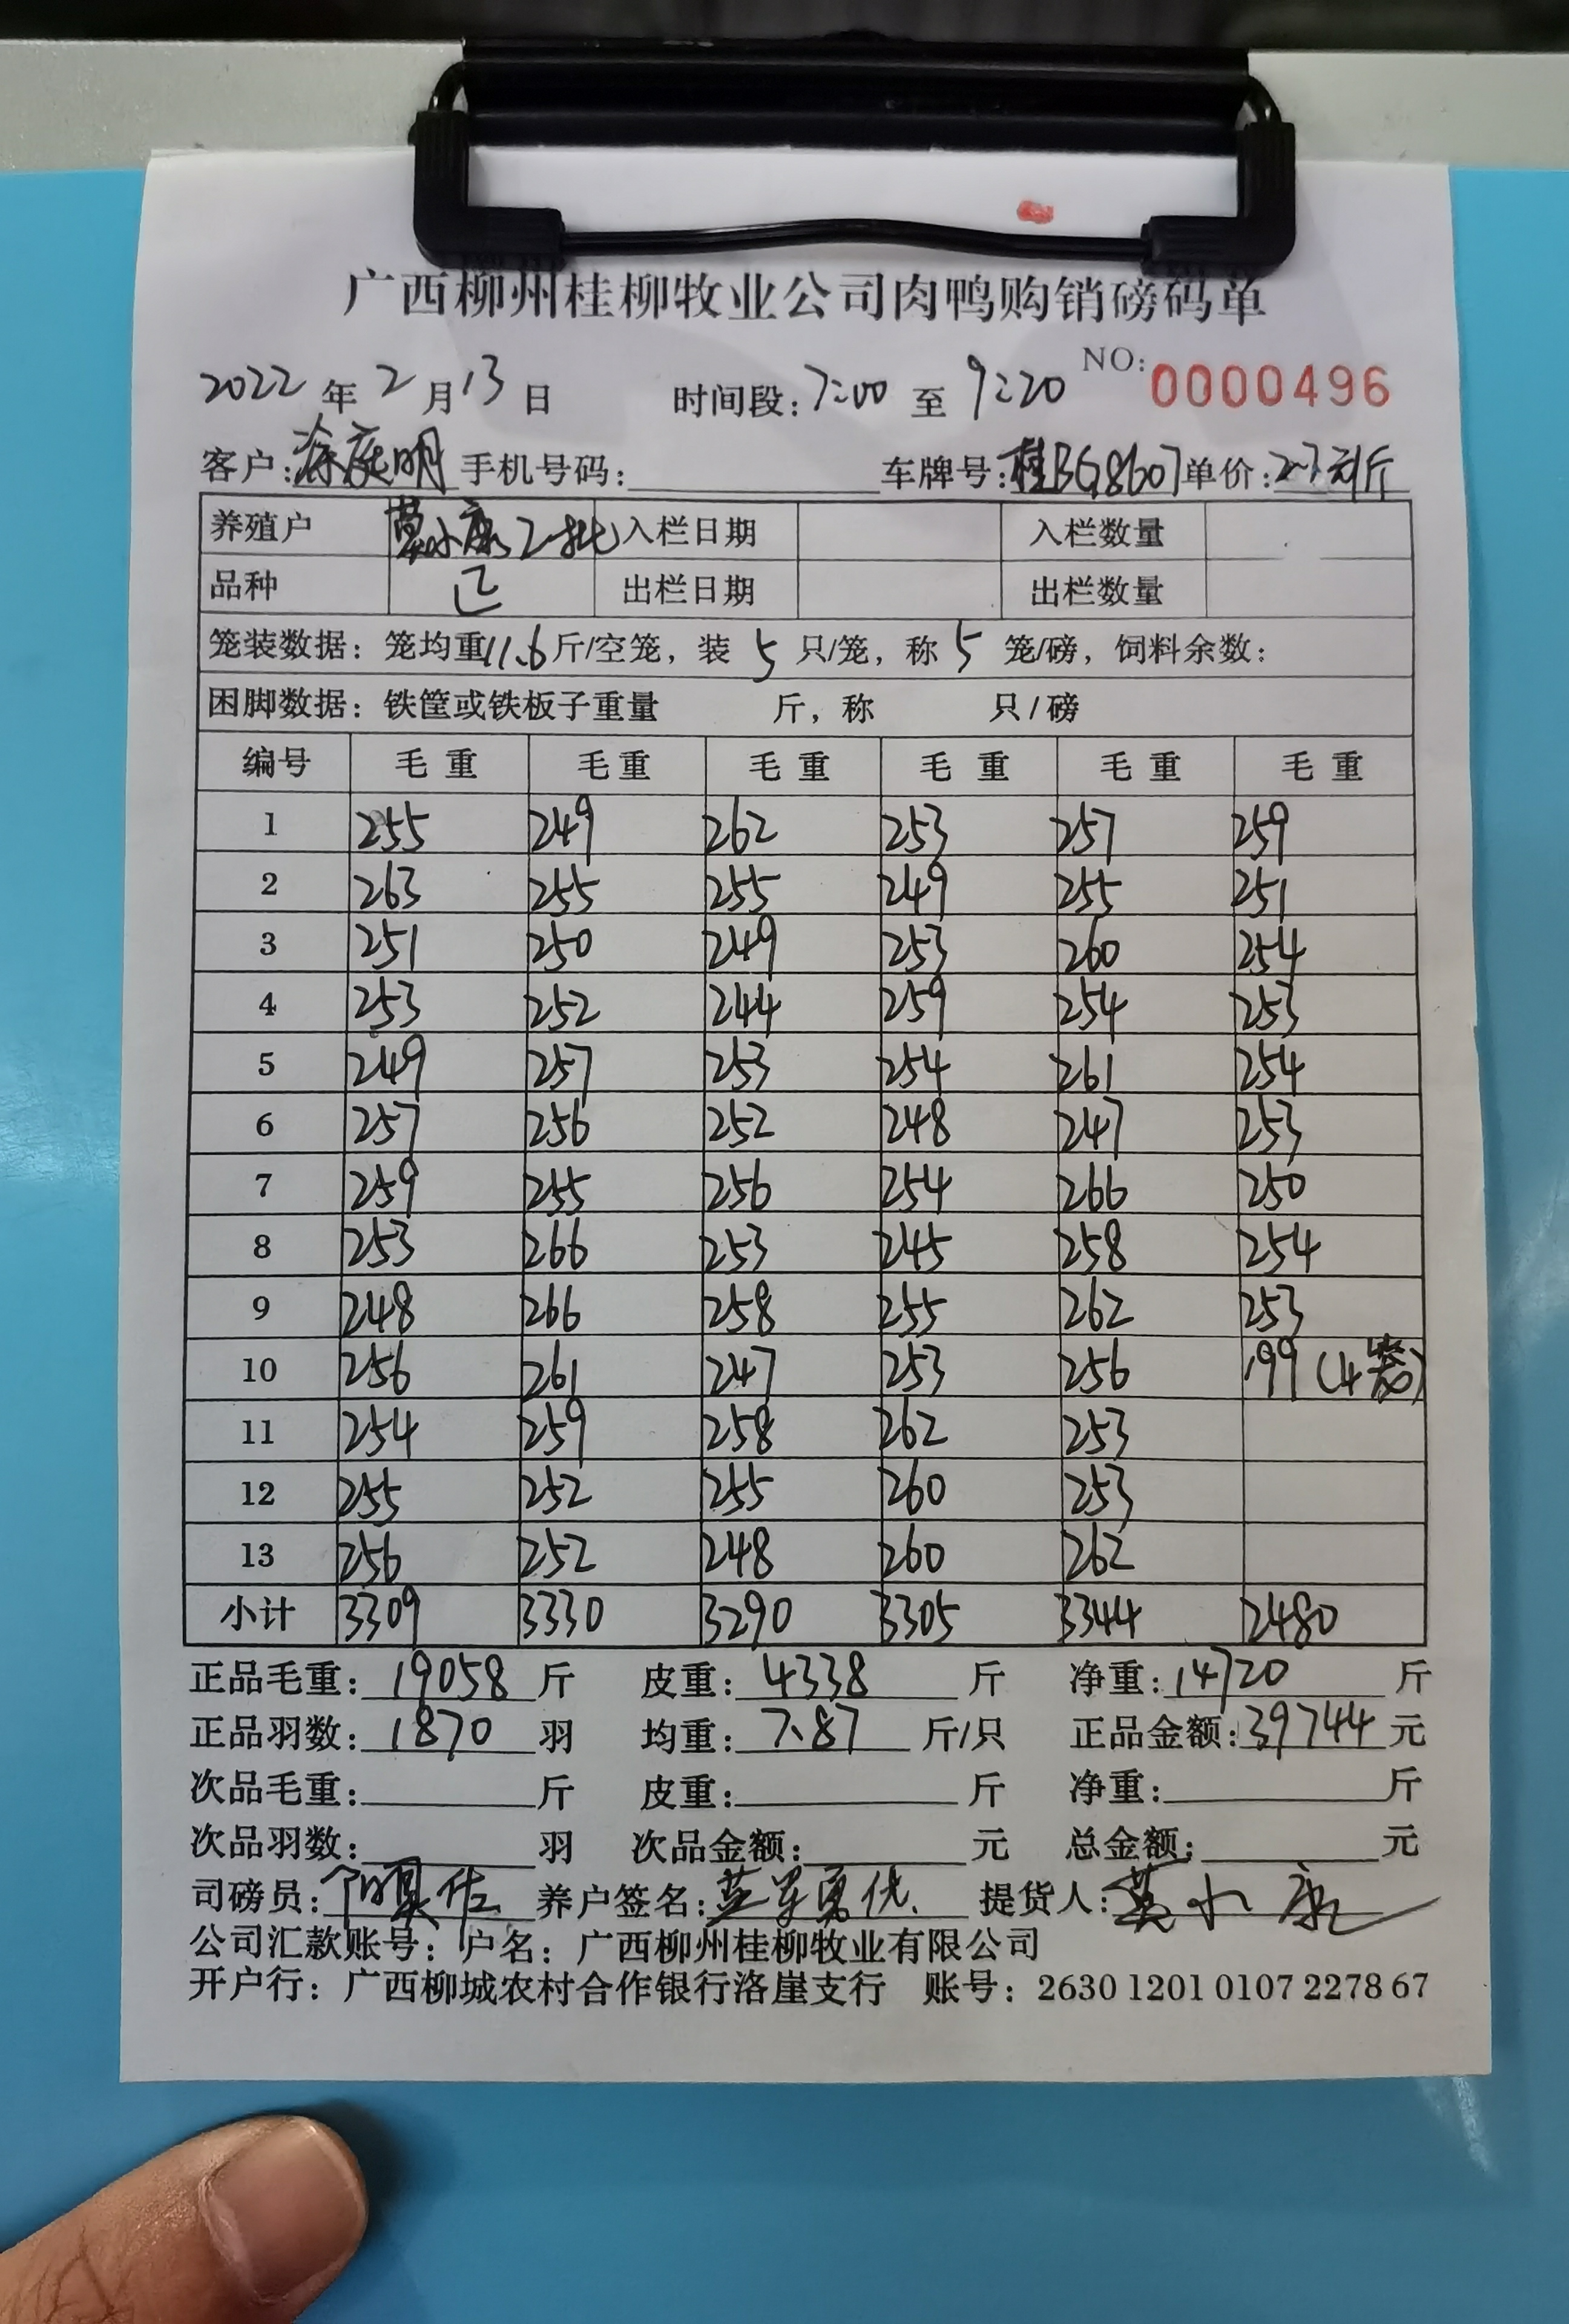 广西柳州桂柳牧业公司肉鸭购销磅码单
2022 年 2 月 13 日 时间段: 7:00 至 9:20 NO: 0000496
客户: 涂庭明 手机号码: 车牌号: 桂BG8607 单价: 2.7元/斤
养殖户 小康2批 入栏日期 入栏数量
品种 出栏日期 出栏数量
笼装数据: 笼均重11.6斤/空笼, 装 5 只/笼, 称 5 笼/磅, 饲料余数:
困脚数据: 铁筐或铁板子重量 斤, 称 只/磅
编号 毛重 毛重 毛重 毛重 毛重 毛重
1 255 249 262 253 257 259
2 263 255 255 249 255 251
3 251 250 249 253 260 254
4 253 252 244 259 254 253
5 249 257 253 254 261 254
6 257 256 252 248 247 253
7 259 255 256 254 266 250
8 253 266 253 245 258 254
9 248 266 258 255 262 253
10 256 261 247 253 256 199 (4笼)
11 254 259 258 262 253
12 255 252 255 260 253
13 256 252 248 260 262
小计 3309 3330 3290 3305 3344 2480
正品毛重: 19058 斤 皮重: 4338 斤 净重: 14720 斤
正品羽数: 1870 羽 均重: 7.87 斤/只 正品金额: 39744 元
次品毛重: 斤 皮重: 斤 净重: 斤
次品羽数: 羽 次品金额: 元 总金额: 元
司磅员: 养户签名: 提货人:
公司汇款账号: 户名: 广西柳州桂柳牧业有限公司
开户行: 广西柳城农村合作银行洛崖支行 账号: 2630 1201 0107 2278 67